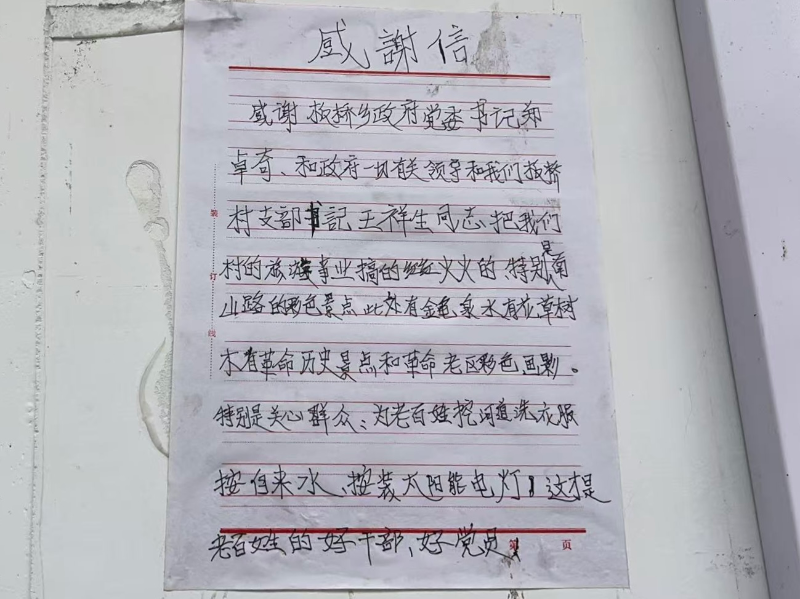 感謝信
感谢板桥乡政府党委书记郑
卓奇、和政府一切有关领导和我们板桥
村支部书記王祥生同志把我们
村的旅游事业搞的红红火火的特别是南
山路的彩色景点此处有金色泉水有花草树
木有革命历史景点和革命老区彩色画影。
特别是关心群众、为老百姓挖河道洗衣服
按自来水、按装太阳能电灯!这才是
老百姓的好干部、好党员!
装
订
线
第 页